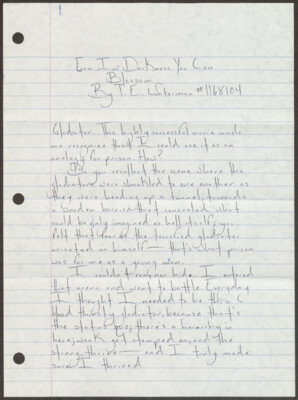 Even In Darkness You Can
Blossom
By T.E. Waterman #1168104
Gladiator. The highly successful movie made
me recognize that I could use it as an
analogy for prison. How?
Do you recollect the scene where the
gladiators were shackled to one another as
they were heading up a tunnel towards
a wooden barrier that concealed what
could be only imagined as hell itself? I
felt that fear as the terrified gladiator
urinated on himself — that's what prison
was for me as a young man.
I couldn't run nor hide. I entered
that arena and went to battle everyday.
I thought I needed to be this
blood thirsty gladiator, because that's
the status quo; there's a hierarchy in
here, weak get stomped on, and the
strong thrive — and I truly made
sure I thrived